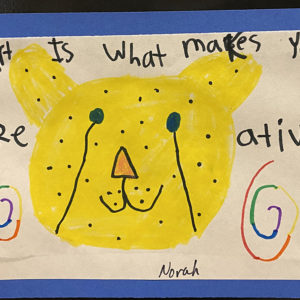 rt Is what makes y
re ativ
Norah